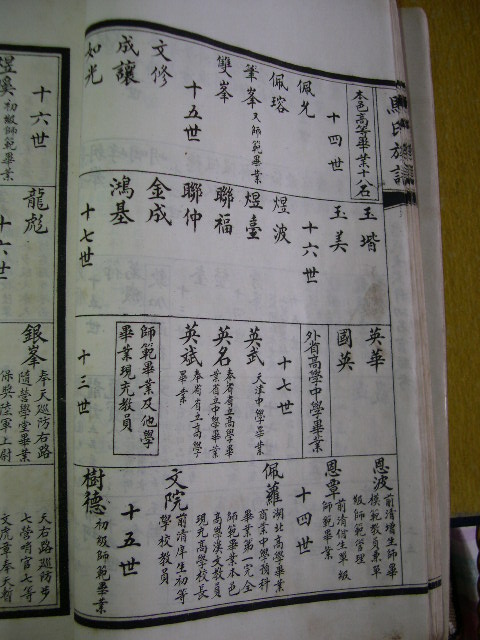 馬氏族譜
本邑高等畢業十八名
十四世
佩光
佩瑢
筆峯 又師範畢業
雙峯
十五世
文修
成讓
如光
玉堦
玉美
十六世
煜波
煜臺
聯福
聯仲
金成
鴻基
十七世
英華
國英
外省高學中學畢業
十七世
英武 天津中學畢業
英名 奉省省立高學畢
業省立中學畢業
英斌 奉省省立高學
畢業
師範畢業及他學
畢業現充教員
十三世
恩波 前清增生師畢
模範教員兼單
級師範管理
恩覃 前清附生單級
師範畢業
十四世
佩蘿 湖北高學畢業
商業中學預科
畢業第一完全
師範畢業本邑
高學漢文教員
現充高學校長
文院 前清庠生初等
學校教員
十五世
樹德 初級師範畢業
初級師範畢業
十六世
龍彪
十六世
銀峯 奉天巡防右路
隨營學堂畢業
保獎陸軍上尉
天右路巡防步
七營哨官七等
文虎章奉天暫